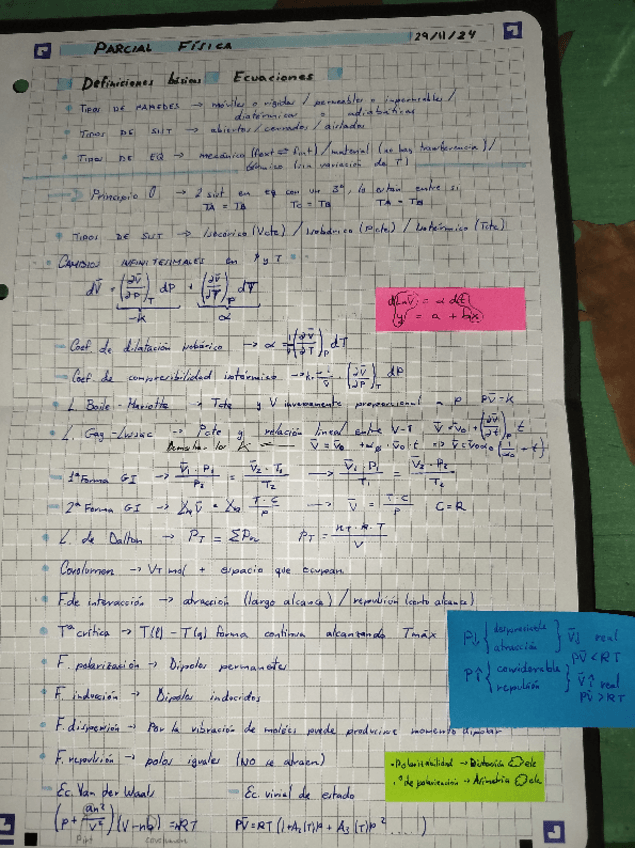 PARCIAL FÍSICA 29/11/24
Definiciones básicas Ecuaciones
TIPOS DE PAREDES → móviles o rígidas / permeables o impermeables /
diatérmicas o adiabáticas
TIPOS DE SIST → abiertos / cerrados / aislados
TIPOS DE EQ → mecánico (Fext = Fint) / material (no hay transferencia) /
térmico (sin variación de T)
Principio 0 → 2 sist en eq con un 3º, lo están entre sí
TA = TB TC = TB TA = TB
TIPOS DE SIST → Isocórico (Vcte) / Isobárico (Pcte) / Isotérmico (Tcte)
CAMBIOS INFINITESIMALES en P y T
dV̄ = (∂V̄/∂P)T dP + (∂V̄/∂T)P dT
-k α
dLnV̄ = α dt
y = a + bx
Coef. de dilatación isobárico → α = 1/V̄ (∂V̄/∂T)P dT
Coef. de compresibilidad isotérmico → (∂V̄/∂P)T dP
L. Boile-Mariotte → Tcte y V inversamente proporcional a P PV̄ = K
→ Pcte y relación lineal entre V-T V̄ = V̄0 + (∂V̄/∂t)P t
V̄ = V̄0 + α0 · V̄0 · t ⇒ V̄ = V̄0α0 (1/α0 + t)
1ª Forma GI → → V̄1 · P1/T1 = V̄2 · P2/T2
2ª Forma GI → → V̄ = T·C/P C = R
L. de Dalton → PT = ΣPn PT = nT·R·T/V
Covolumen → VT mol + espacio que ocupan
F. de interacción → atracción (largo alcance) / repulsión (corto alcance)
Tª crítica → T(l) - T(g) forma continua alcanzando Tmáx
P↓ { despreciable atracción } V̄↓ real
PV̄ < RT
P↑ { considerable repulsión } V̄↑ real
PV̄ > RT
F. polarización → Dipolos permanentes
F. inducción → Dipolos inducidos
F. dispersión → Por la vibración de moléc puede producirse momento dipolar
F. repulsión → polos iguales (NO se atraen)
• Polarizabilidad → Distorsión elc
• de polarización → Asimetría elc
Ec. Van der Waals Ec. virial de estado
(P + an²/V²)(V - nb) = nRT PV̄ = RT (1 + A2(T)P + A3(T)P² ......)